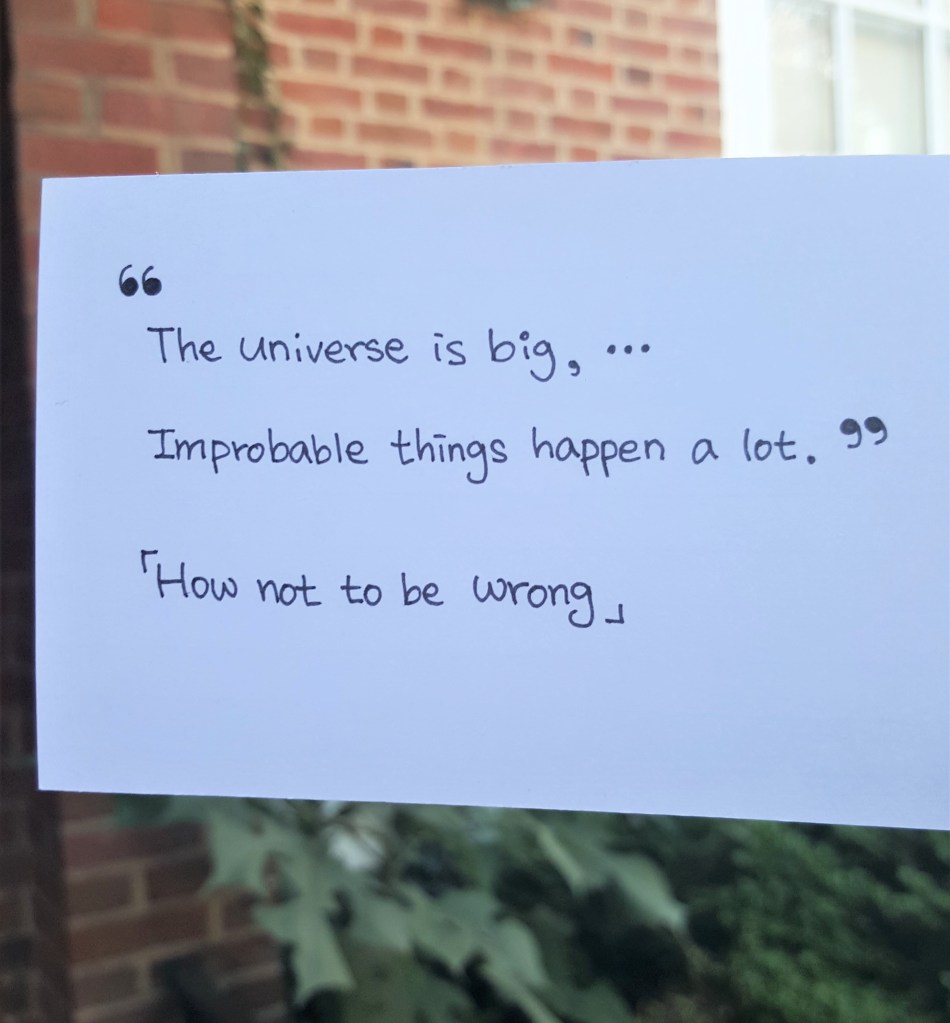 “
The universe is big, ...
Improbable things happen a lot. ”
「How not to be wrong」